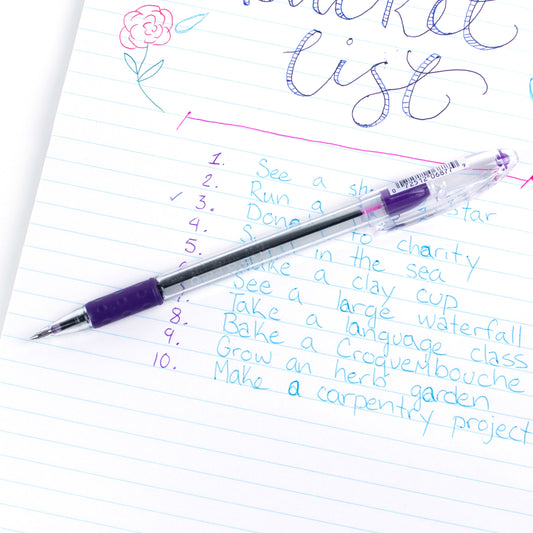 Bucket
List
1. See a star
2. Run a
✓ 3. to charity
4. in the sea
5. Make a clay cup
See a large waterfall
7. Take a language class
8. Bake a Croquembouche
9. Grow an herb garden
10. Make a carpentry project
0 72512 06677 9